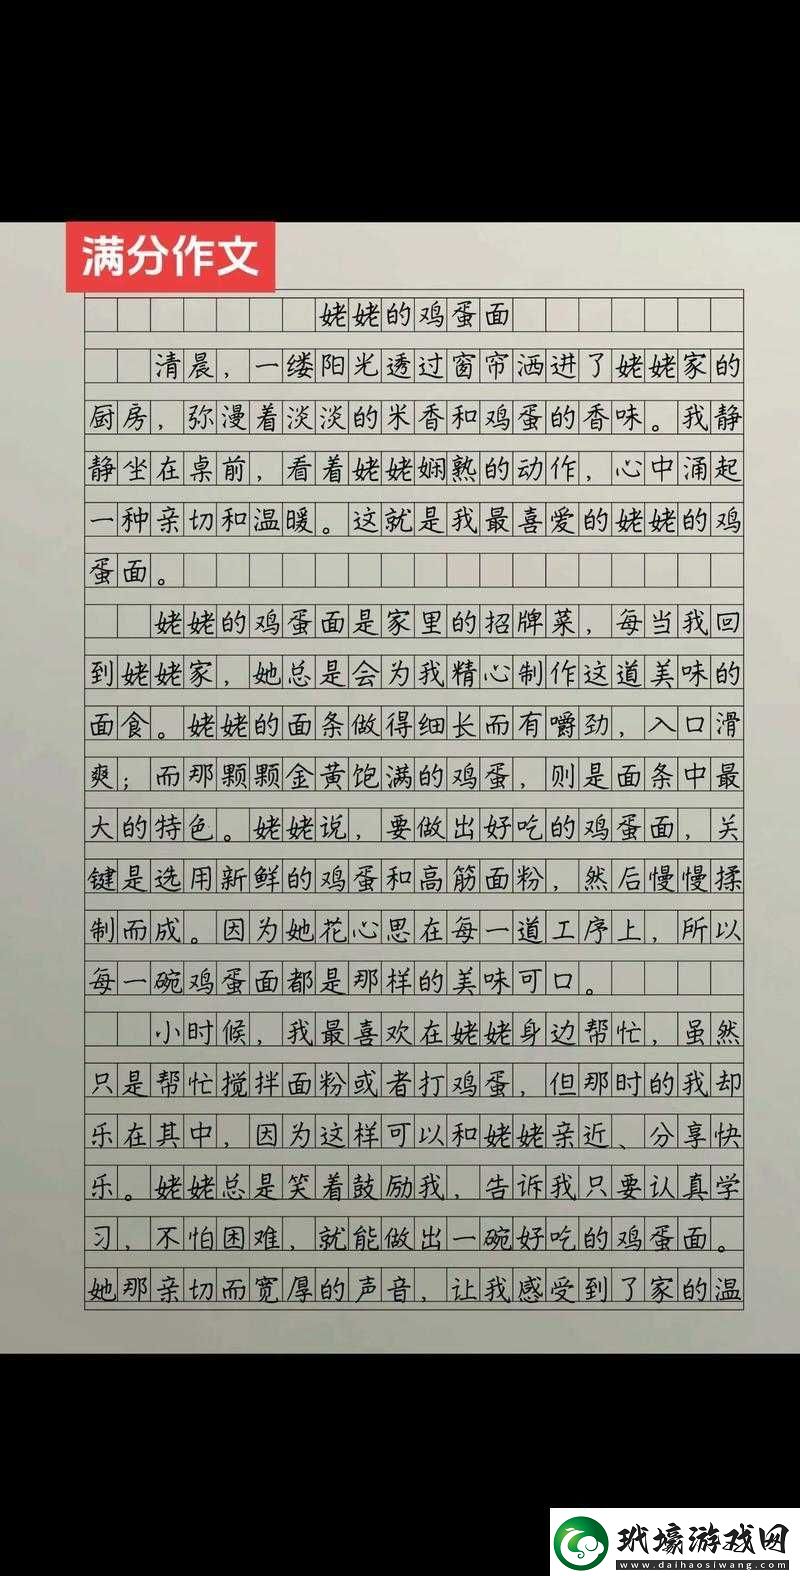 满分作文
姥姥的鸡蛋面
清晨，一缕阳光透过窗帘洒进了姥姥家的
厨房，弥漫着淡淡的米香和鸡蛋的香味。我静
静坐在桌前，看着姥姥娴熟的动作，心中涌起
一种亲切和温暖。这就是我最喜爱的姥姥的鸡
蛋面。
姥姥的鸡蛋面是家里的招牌菜，每当我回
到姥姥家，她总是会为我精心制作这道美味的
面食。姥姥的面条做得细长而有嚼劲，入口滑
爽；而那颗颗金黄饱满的鸡蛋，则是面条中最
大的特色。姥姥说，要做出好吃的鸡蛋面，关
键是选用新鲜的鸡蛋和高筋面粉，然后慢慢揉
制而成。因为她花心思在每一道工序上，所以
每一碗鸡蛋面都是那样的美味可口。
小时候，我最喜欢在姥姥身边帮忙，虽然
只是帮忙搅拌面粉或者打鸡蛋，但那时的我却
乐在其中，因为这样可以和姥姥亲近、分享快
乐。姥姥总是笑着鼓励我，告诉我只要认真学
习，不怕困难，就能做出一碗好吃的鸡蛋面。
她那亲切而宽厚的声音，让我感受到了家的温
玳壕游戏网
www.daihaosiwang.com